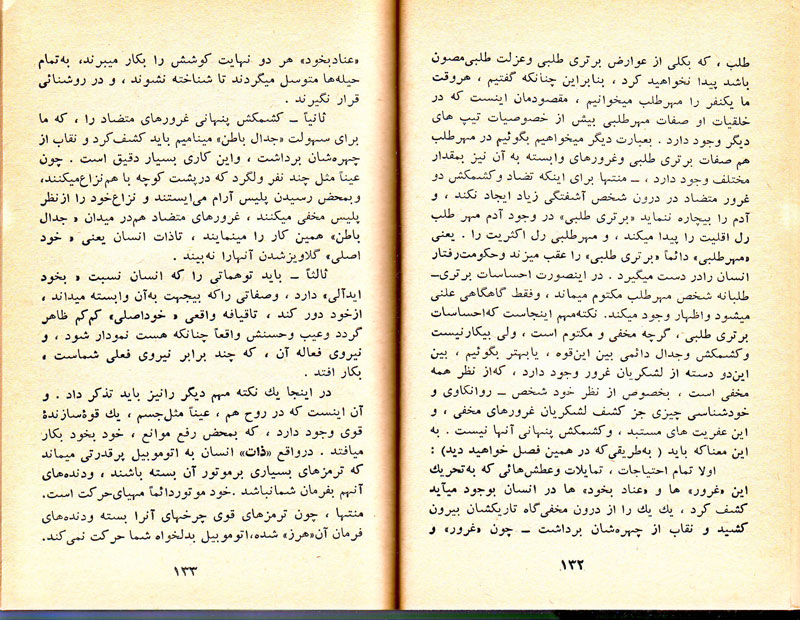 طلب ، که بکلی از عوارض برتری طلبی وعزلت طلبی‌مصون
باشد پیدا نخواهید کرد ، بنابراین چنانکه گفتیم ، هروقت
ما یکنفر را مهرطلب میخوانیم ، مقصودمان اینست که در
خلقیات او صفات مهرطلبی بیش از خصوصیات تیپ های
دیگر وجود دارد . بعبارت دیگر میخواهیم بگوئیم در مهرطلب
هم صفات برتری طلبی وغرورهای وابسته به آن نیز بمقدار
مختلف وجود دارد ، ــ منتها برای اینکه تضاد وکشمکش دو
غرور متضاد در درون شخص آشفتگی زیاد ایجاد نکند ، و
آدم را بیچاره ننماید «برتری طلبی» در وجود آدم مهر طلب
رل اقلیت را پیدا میکند ، و مهرطلبی رل اکثریت را . یعنی
«مهرطلبی» دائماً «برتری طلبی» را عقب میزند وحکومت‌رفتار
انسان رادر دست میگیرد . در اینصورت احساسات برتری‌ــ
طلبانه شخص مهرطلب مکتوم میماند ، وفقط گاهگاهی علنی
میشود واظهار وجود میکند. نکته‌مهم اینجاست که‌احساسات
برتری طلبی ، گرچه مخفی و مکتوم است ، ولی بیکارنیست
وکشمکش وجدال دائمی بین این‌قوه ، یابهتر بگوئیم ، بین
این‌دو دسته از لشکریان غرور وجود دارد ، که‌از نظر همه
مخفی است ، بخصوص از نظر خود شخص ــ روانکاوی و
خودشناسی چیزی جز کشف لشکریان غرورهای مخفی ، و
این عفریت های مستبد ، وکشمکش پنهانی آنها نیست . به
این معناکه باید ( به‌طریقی‌که در همین فصل خواهید دید) :
اولا تمام احتیاجات ، تمایلات وعطش‌هائی که به‌تحریك
این «غرور» ها و «عناد بخود» ها در انسان بوجود میآید
کشف کرد ، یك یك را از درون مخفی‌گاه تاریکشان بیرون
کشید و نقاب از چهره‌شان برداشت ــ چون «غرور» و
۱۳۲
«عنادبخود» هر دو نهایت کوشش را بکار میبرند، به‌تمام
حیله‌ها متوسل میگردند تا شناخته نشوند ، و در روشنائی
قرار نگیرند .
ثانیاً ــ کشمکش پنهانی غرورهای متضاد را ، که ما
برای سهولت «جدال باطن» مینامیم باید کشف‌کرد و نقاب از
چهره‌شان برداشت ، واین کاری بسیار دقیق است . چون
عیناً مثل چند نفر ولگرد که درپشت کوچه با هم‌نزاع‌میکنند،
وبمحض رسیدن پلیس آرام می‌ایستند و نزاع‌خود را ازنظر
پلیس مخفی میکنند ، غرورهای متضاد هم‌در میدان « جدال
باطن» همین کار را مینمایند ، تاذات انسان یعنی « خود
اصلی» گلاویزشدن آنهارا نه‌بیند .
ثالثاً ــ باید توهماتی را که انسان نسبت « بخود
ایدآلی» دارد ، وصفاتی راکه بیجهت به‌آن وابسته میداند ،
ازخود دور کند ، تاقیافه واقعی « خوداصلی» کم‌کم ظاهر
گردد وعیب وحسنش واقعاً چنانکه هست نمودار شود ، و
نیروی فعاله آن ، که چند برابر نیروی فعلی شماست ،
بکار افتد .
در اینجا یك نکته مهم دیگر رانیز باید تذکر داد . و
آن اینست که در روح هم ، عیناً مثل‌جسم ، یك قوه‌سازندهٔ
قوی وجود دارد ، که بمحض رفع موانع ، خود بخود بکار
میافتد . درواقع «ذات» انسان به اتوموبیل پرقدرتی میماند
که ترمزهای بسیاری برموتور آن بسته باشند ، ودنده‌های
آنهم بفرمان شمانباشد .خود موتوردائماً مهیای‌حرکت است.
منتها ، چون ترمزهای قوی چرخهای آنرا بسته ودنده‌های
فرمان آن«هرز» شده،اتوموبیل بدلخواه شما حرکت نمی‌کند.
۱۳۳